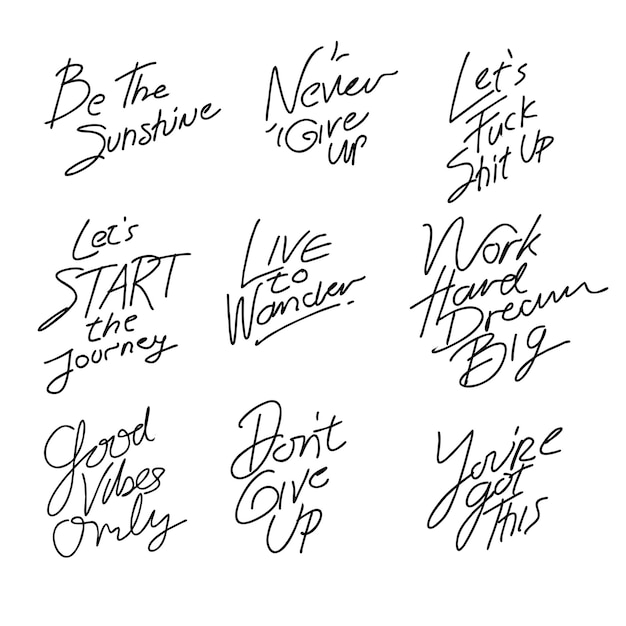 Be The
Sunshine
Never
Give
up
Let's
Fuck
Shit Up
Let's
START
the
Journey
LIVE
to
Wander.
Work
Hard
Dream
BIG
Good
Vibes
Only
Don't
Give
Up
You're
got
this